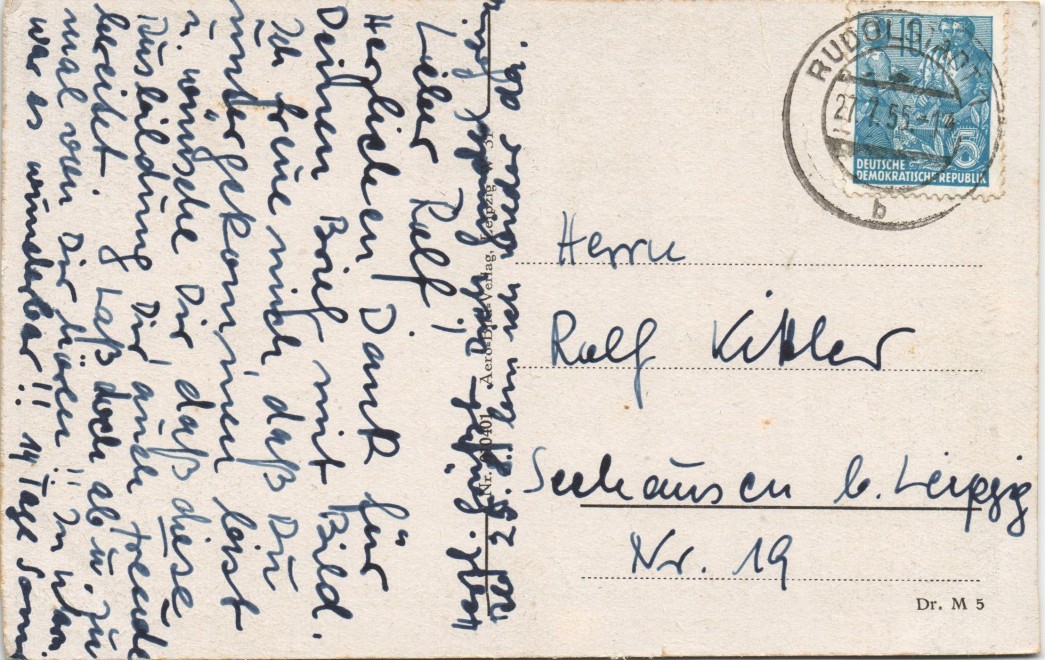 Lieber Ralf!
Herzlichen Dank für
Deinen Brief mit Bild.
Ich freue mich, daß Du
untergekommen bist
u. wünsche Dir, daß diese
Ausbildung Dir auch Freude
bereitet. Laß doch ab u. zu
mal von Dir hören!! In
war es wunderbar!! 14 Tage
25. 8. bin ich wieder da.
Aero-Bild-Verlag, Leipzig
RUDOLSTADT
27.7.55-1
b
DEUTSCHE
DEMOKRATISCHE REPUBLIK
5
Herrn
Ralf Kittler
Seehausen b. Leipzig
Nr. 19
Dr. M 5